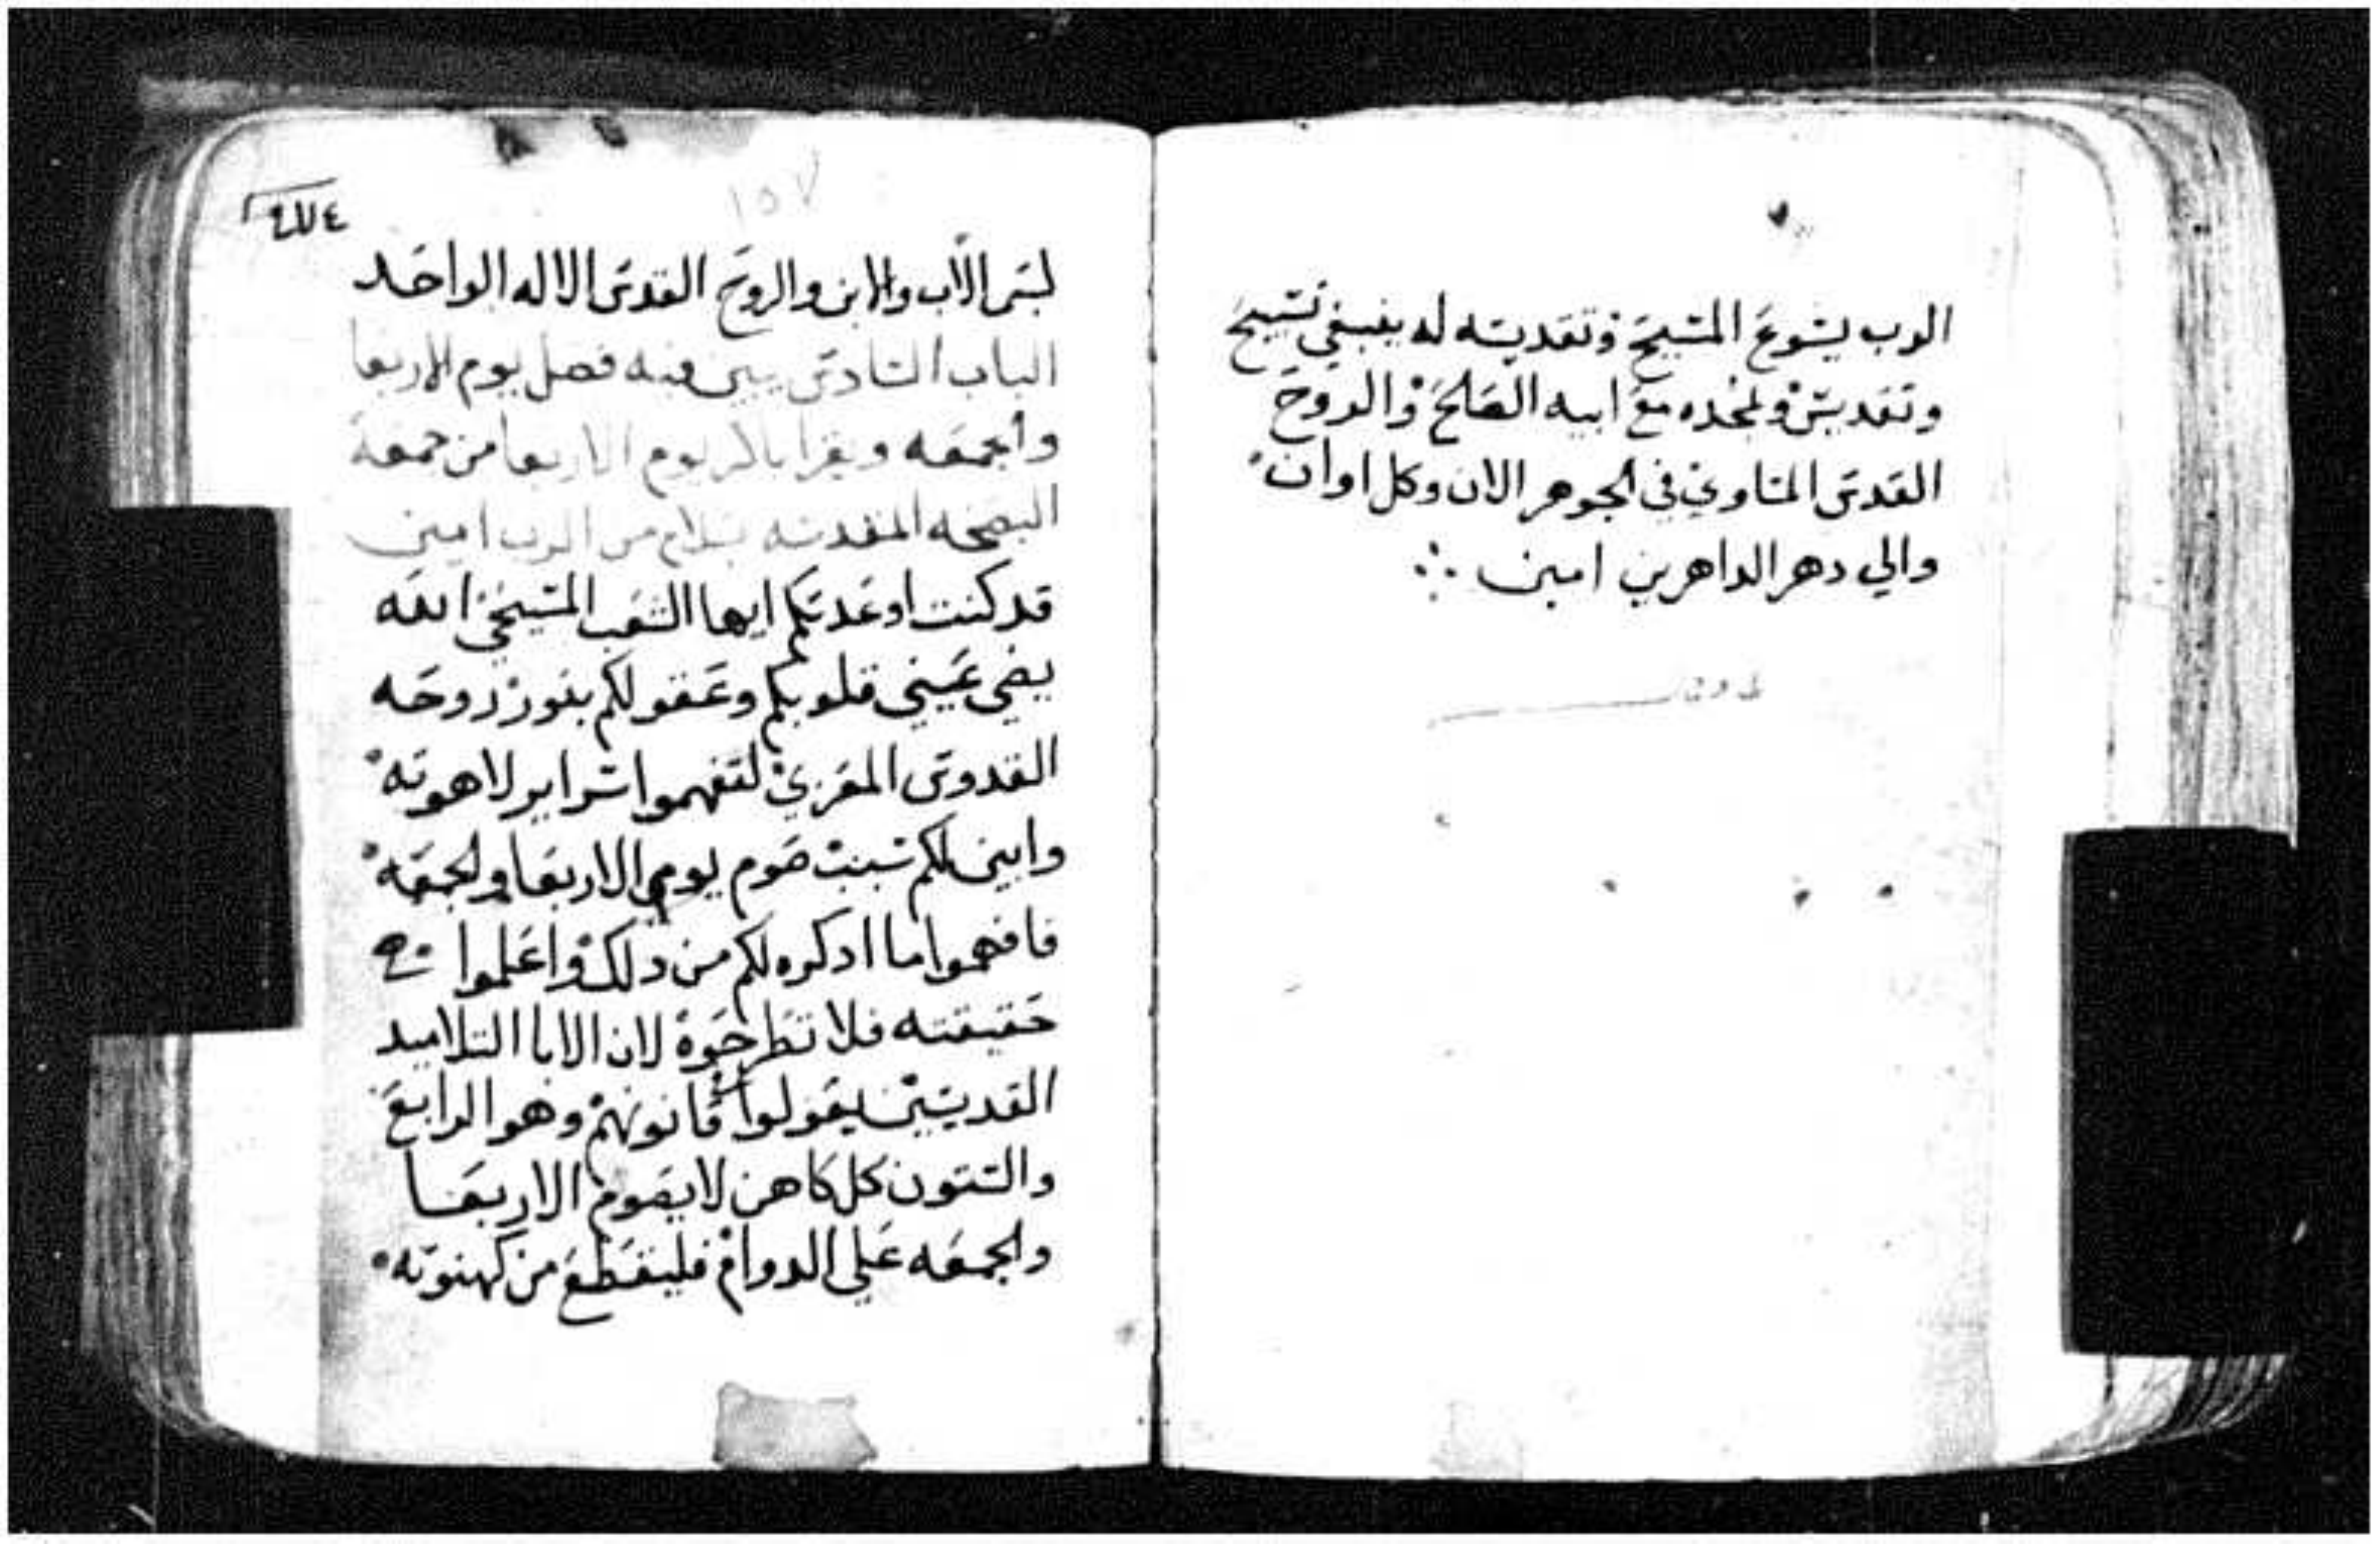 الرب يسوع المسيح وتقديسه له ينبغي تسبيح
وتقديس ولمجده مع ابيه الصالح والروح
القدس المساوي في الجوهر الان وكل اوان
والي دهر الداهرين امين
١٥٧
بسم الاب والابن والروح القدس الاله الواحد
الباب السادس يبين فيه فصل يوم الاربعا
والجمعه ويقرا باكر يوم الاربعا من جمعة
البصخه المقدسه بسلام من الرب امين
قد كنت اوعدتكم ايها الشعب المسيحي الله
يضي عيني قلوبكم وعقولكم بنور روحه
القدوس المعزي لتفهموا سراير لاهوته
وابين لكم سبب صوم يومي الاربعا والجمعه
فافهموا ما ادكره لكم من دلك واعلموا
حقيقته فلا تطرحوه لان الابا التلاميد
القديسين يقولوا قانونهم وهو الرابع
والستون كل كاهن لا يصوم الاربعا
والجمعه علي الدوام فليقطع من كهنوته